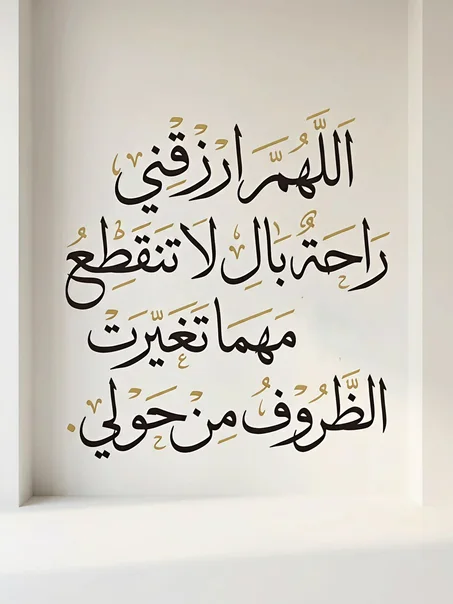 اَللَّهُمَّ ارْزُقْنِي
رَاحَةُ بَالٍ لَا تَنقَطِعُ
مَهمَا تَغَيَّرَتْ
الظُّرُوْفُ مِنْ حَوْلِي.